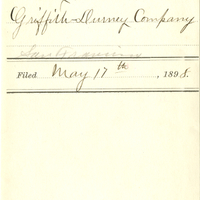 Griffith-Durney Company
San Francisco
Filed May 17th, 1898.